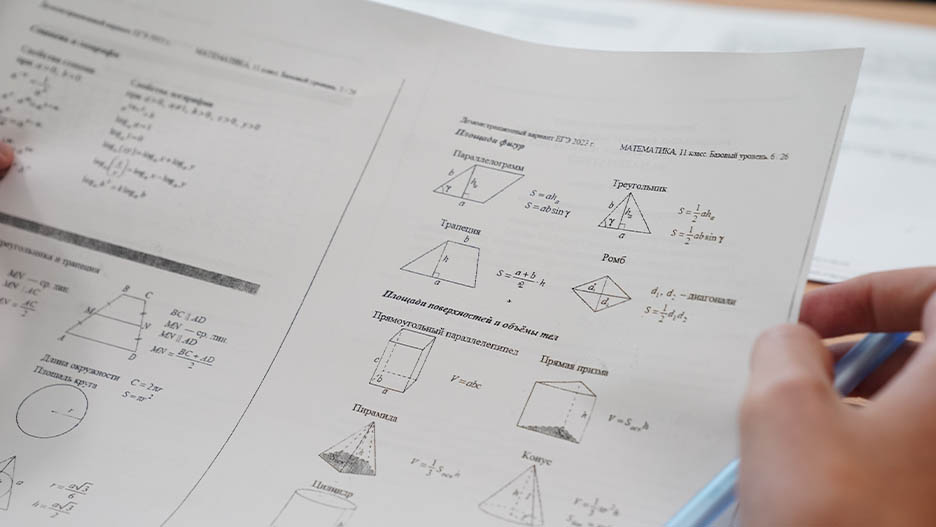 Демонстрационный вариант ЕГЭ 2023 г.
МАТЕМАТИКА, 11 класс. Базовый уровень. 5 / 26
Свойства степени
при a > 0, b > 0
Свойства логарифма
при a > 0, a ≠ 1, b > 0, x > 0, y > 0
logₐ a = 1
logₐ 1 = 0
logₐ(xy) = logₐ x + logₐ y
logₐ(x/y) = logₐ x − logₐ y
logₐ bᵏ = k logₐ b
треугольника и трапеции
MN — ср. лин.
MN ∥ AC
MN = AC/2
B
C
M
N
A
D
BC ∥ AD
MN — ср. лин.
MN ∥ AD
MN = (BC + AD)/2
Длина окружности
Площадь круга
C = 2πr
S = πr²
r
a
r = a√3/6
h = a√3/2
Демонстрационный вариант ЕГЭ 2023 г.
МАТЕМАТИКА, 11 класс. Базовый уровень. 6 / 26
Площади фигур
Параллелограмм
b
hₐ
γ
a
S = ahₐ
S = ab sin γ
Треугольник
b
hₐ
γ
a
S = 1/2 ahₐ
S = 1/2 ab sin γ
Трапеция
b
h
a
S = (a + b)/2 · h
Ромб
d₁
d₂
d₁, d₂ – диагонали
S = 1/2 d₁d₂
Площади поверхностей и объёмы тел
Прямоугольный параллелепипед
c
b
a
V = abc
Прямая призма
h
V = Sосн h
Пирамида
h
V = 1/3 Sосн h
Конус
h
l
r
Цилиндр
h